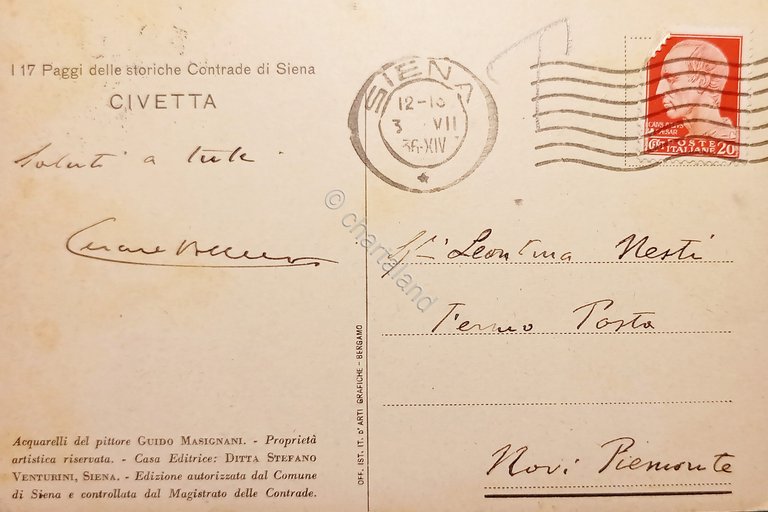 I 17 Paggi delle storiche Contrade di Siena
CIVETTA
Saluti a tutti
Cesare
Acquarelli del pittore GUIDO MASIGNANI. - Proprietà
artistica riservata. - Casa Editrice: DITTA STEFANO
VENTURINI, SIENA. - Edizione autorizzata dal Comune
di Siena e controllata dal Magistrato delle Contrade.
OFF. IST. IT. D'ARTI GRAFICHE - BERGAMO
SIENA
12-13
3 VII
36-XIV
T
POSTE
ITALIANE 20
Leontina Nesti
Fermo Posta
Novi Piemonte
© chartaland